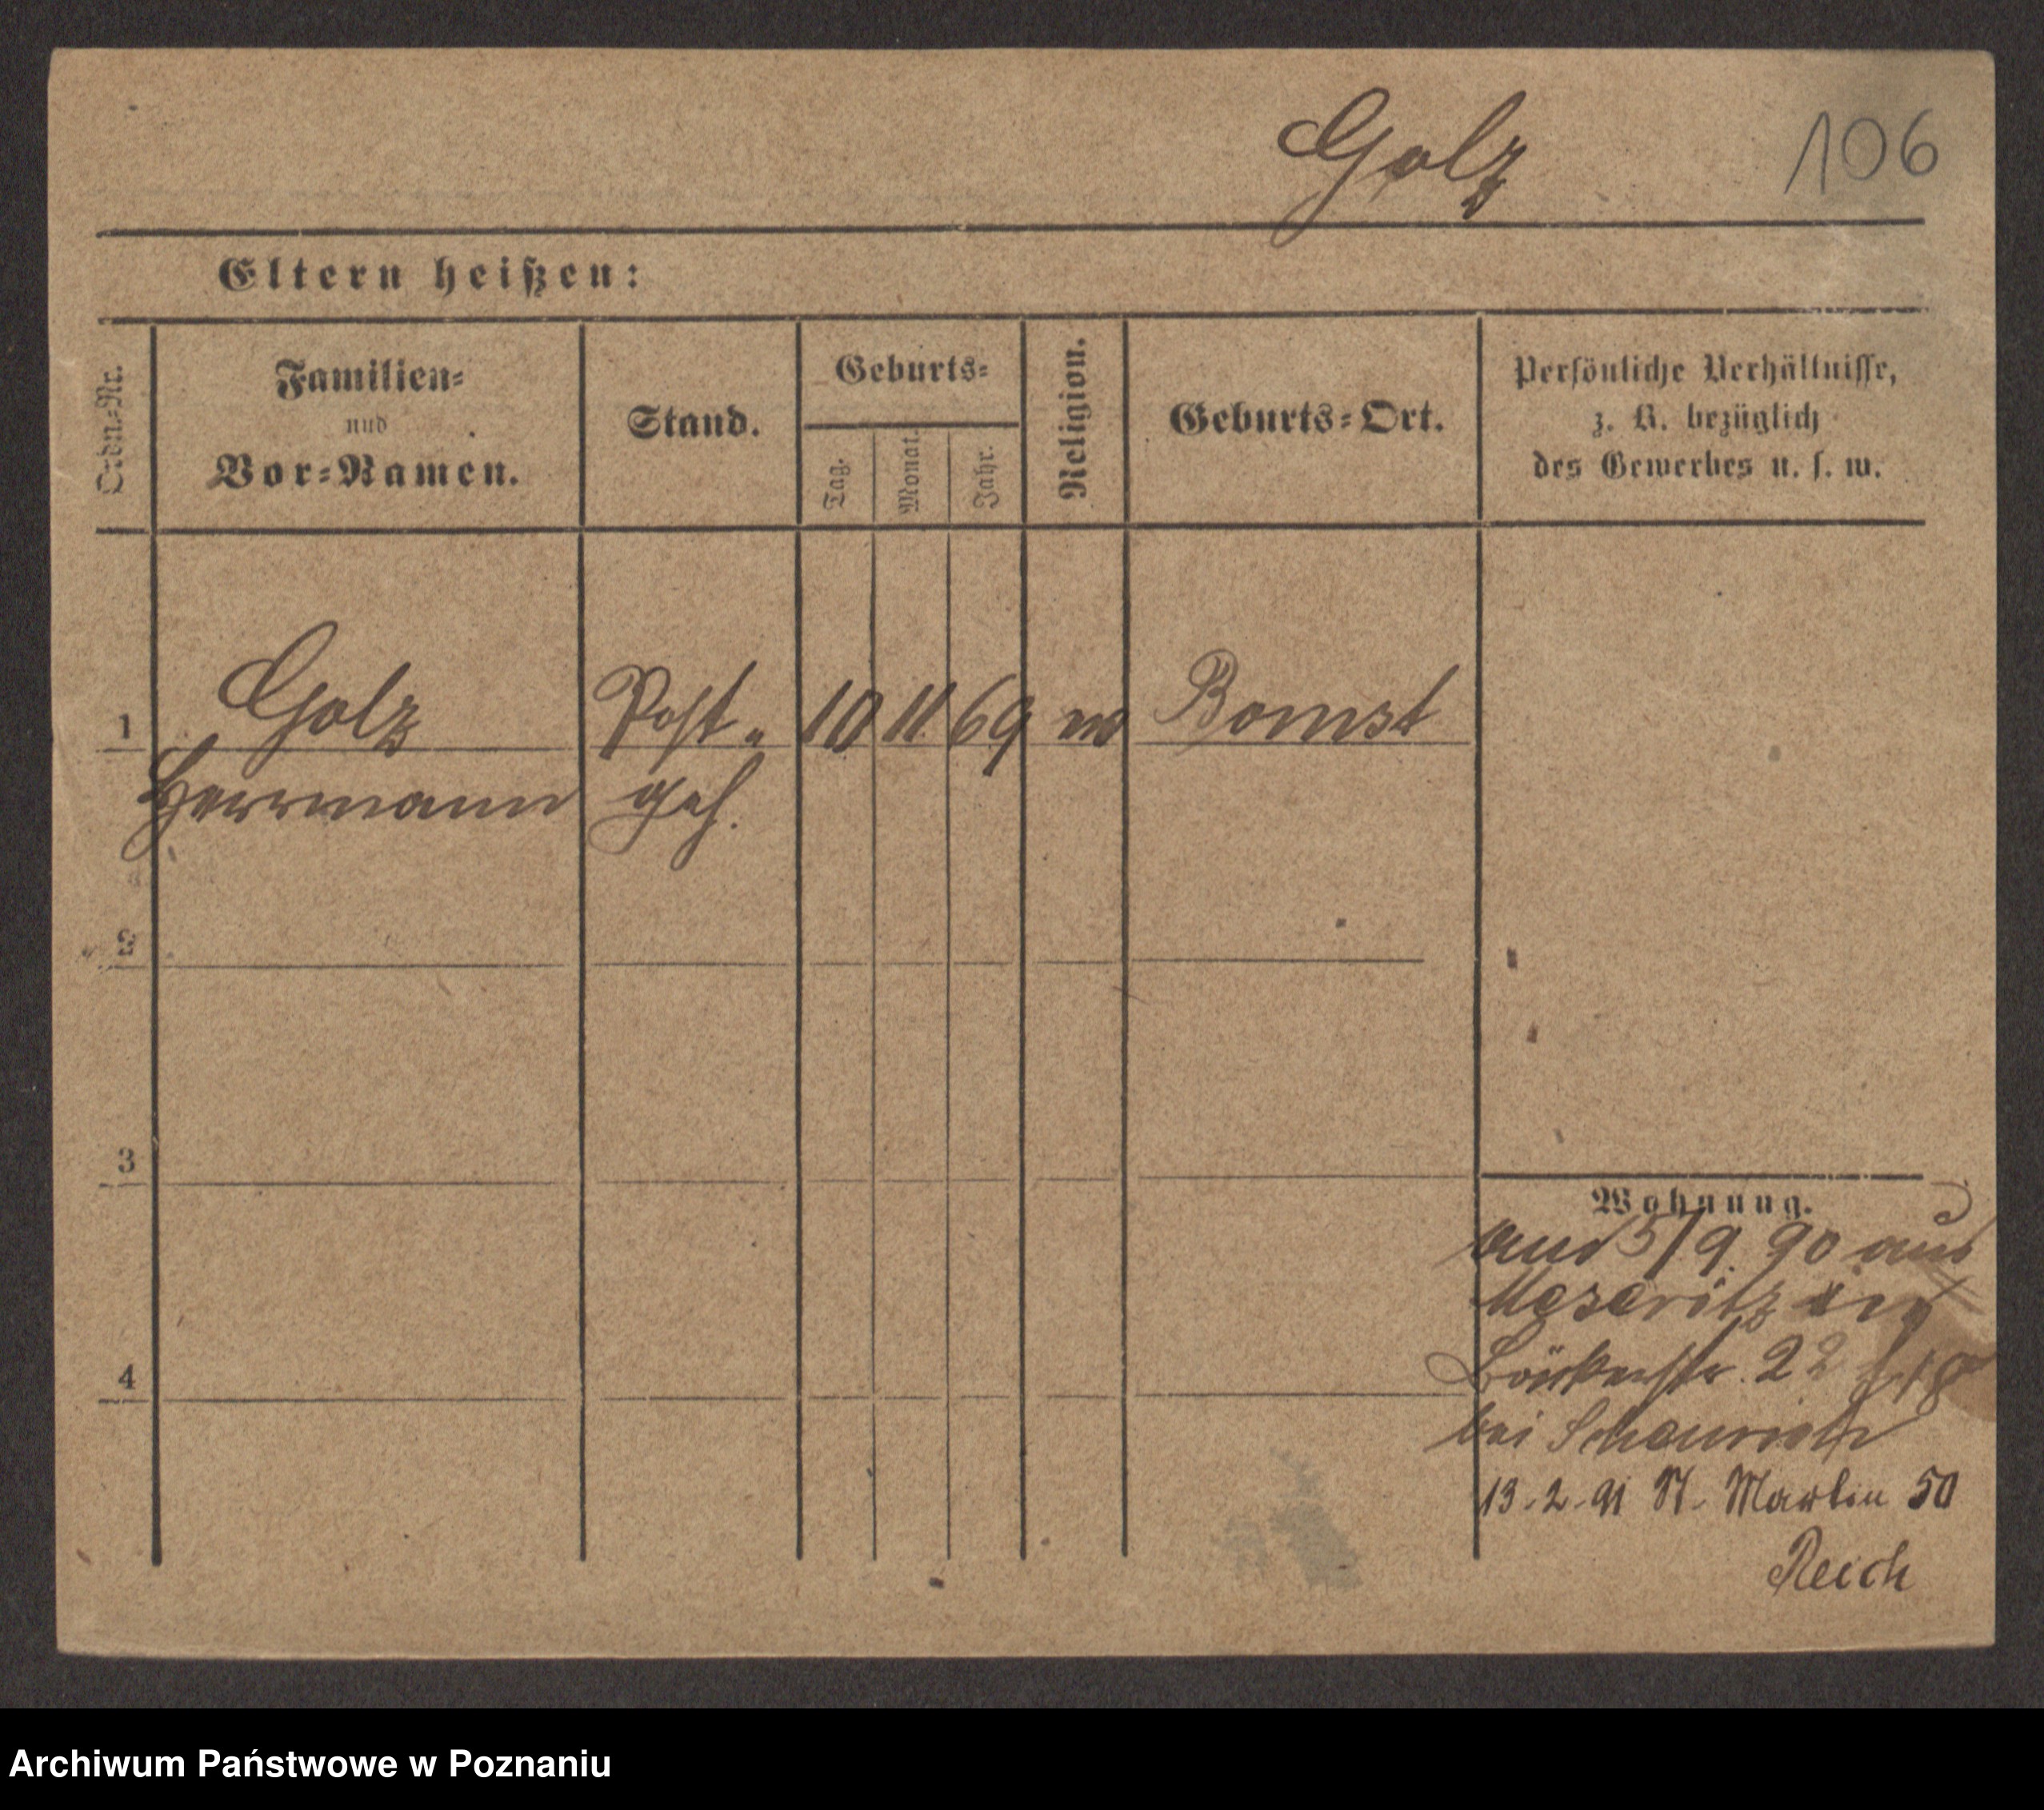 Golz
106
Eltern heißen:
Ordn.=Nr.
Familien=
und
Vor=Namen.
Stand.
Geburts=
Tag.
Monat.
Jahr.
Religion.
Geburts=Ort.
Persönliche Verhältnisse,
z. B. bezüglich
des Gewerbes u. s. w.
1 Golz Post= 10 11 69 Bomst
Herrmann geh.
2
3
4
Wohnung.
5/9. 90 aus
Meseritz
22
bei
13.2.91 St. Martin 50
Reich
Archiwum Państwowe w Poznaniu